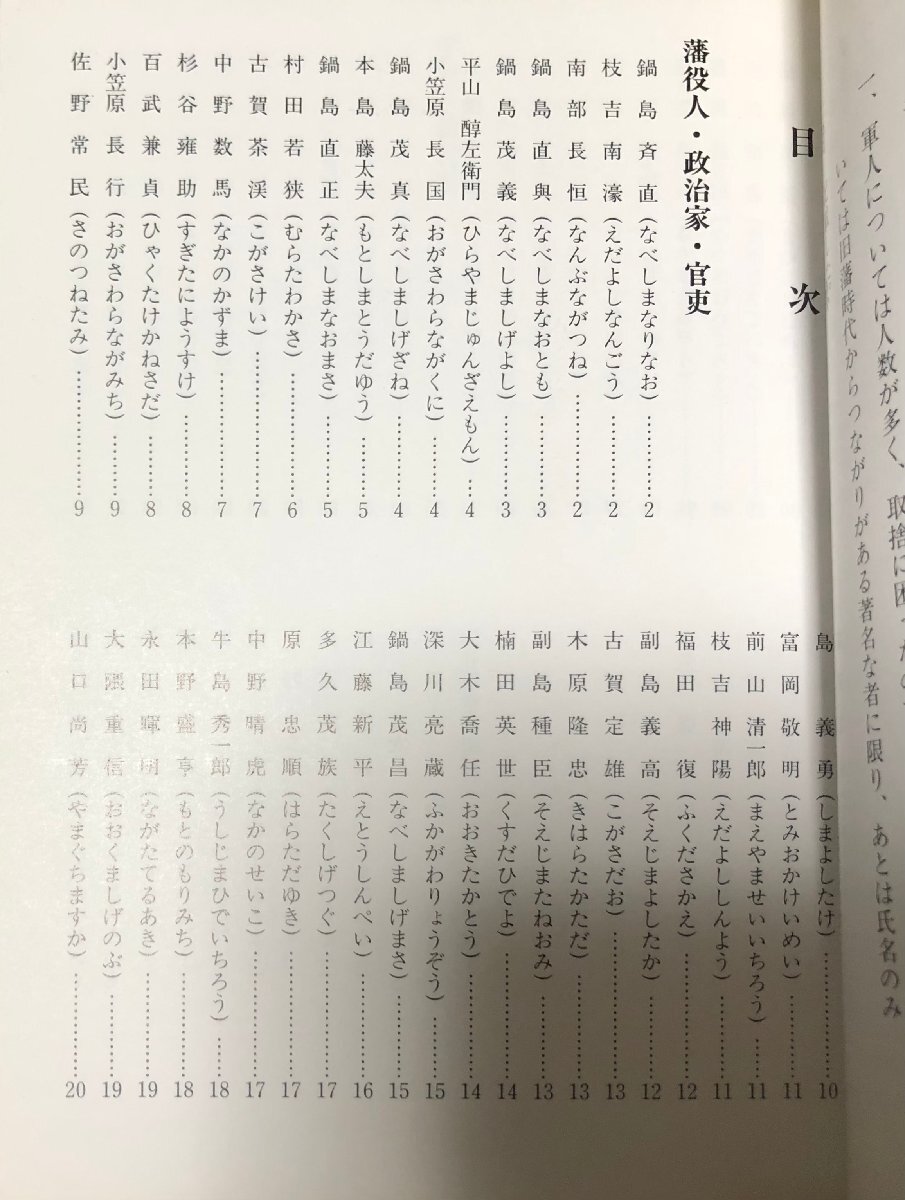 一、軍人については人数が多く、取捨に困ったの
いては旧藩時代からつながりがある著名な者に限り、あとは氏名のみ
目次
藩役人・政治家・官吏
鍋島斉直(なべしまなりなお)…………2
枝吉南濠(えだよしなんごう)…………2
南部長恒(なんぶながつね)…………2
鍋島直與(なべしまなおとも)…………3
鍋島茂義(なべしましげよし)…………3
平山醇左衛門(ひらやまじゅんざえもん)…4
小笠原長国(おがさわらながくに)…………4
鍋島茂真(なべしましげざね)…………4
本島藤太夫(もとしまとうだゆう)…………5
鍋島直正(なべしまなおまさ)…………5
村田若狭(むらたわかさ)…………6
古賀茶渓(こがさけい)…………7
中野数馬(なかのかずま)…………7
杉谷雍助(すぎたにようすけ)…………8
百武兼貞(ひゃくたけかねさだ)…………8
小笠原長行(おがさわらながみち)…………9
佐野常民(さのつねたみ)…………9
島義勇(しまよしたけ)…………10
富岡敬明(とみおかけいめい)…………11
前山清一郎(まえやませいいちろう)…………11
枝吉神陽(えだよししんよう)…………11
福田復(ふくださかえ)…………12
副島義高(そえじまよしたか)…………12
古賀定雄(こがさだお)…………13
木原隆忠(きはらたかただ)…………13
副島種臣(そえじまたねおみ)…………13
楠田英世(くすだひでよ)…………14
大木喬任(おおきたかとう)…………14
深川亮蔵(ふかがわりょうぞう)…………15
鍋島茂昌(なべしましげまさ)…………15
江藤新平(えとうしんぺい)…………16
多久茂族(たくしげつぐ)…………17
原忠順(はらただゆき)…………17
中野晴虎(なかのせいこ)…………17
牛島秀一郎(うしじまひでいちろう)…………18
本野盛亨(もとのもりみち)…………18
永田暉明(ながたてるあき)…………19
大隈重信(おおくましげのぶ)…………19
山口尚芳(やまぐちますか)…………20